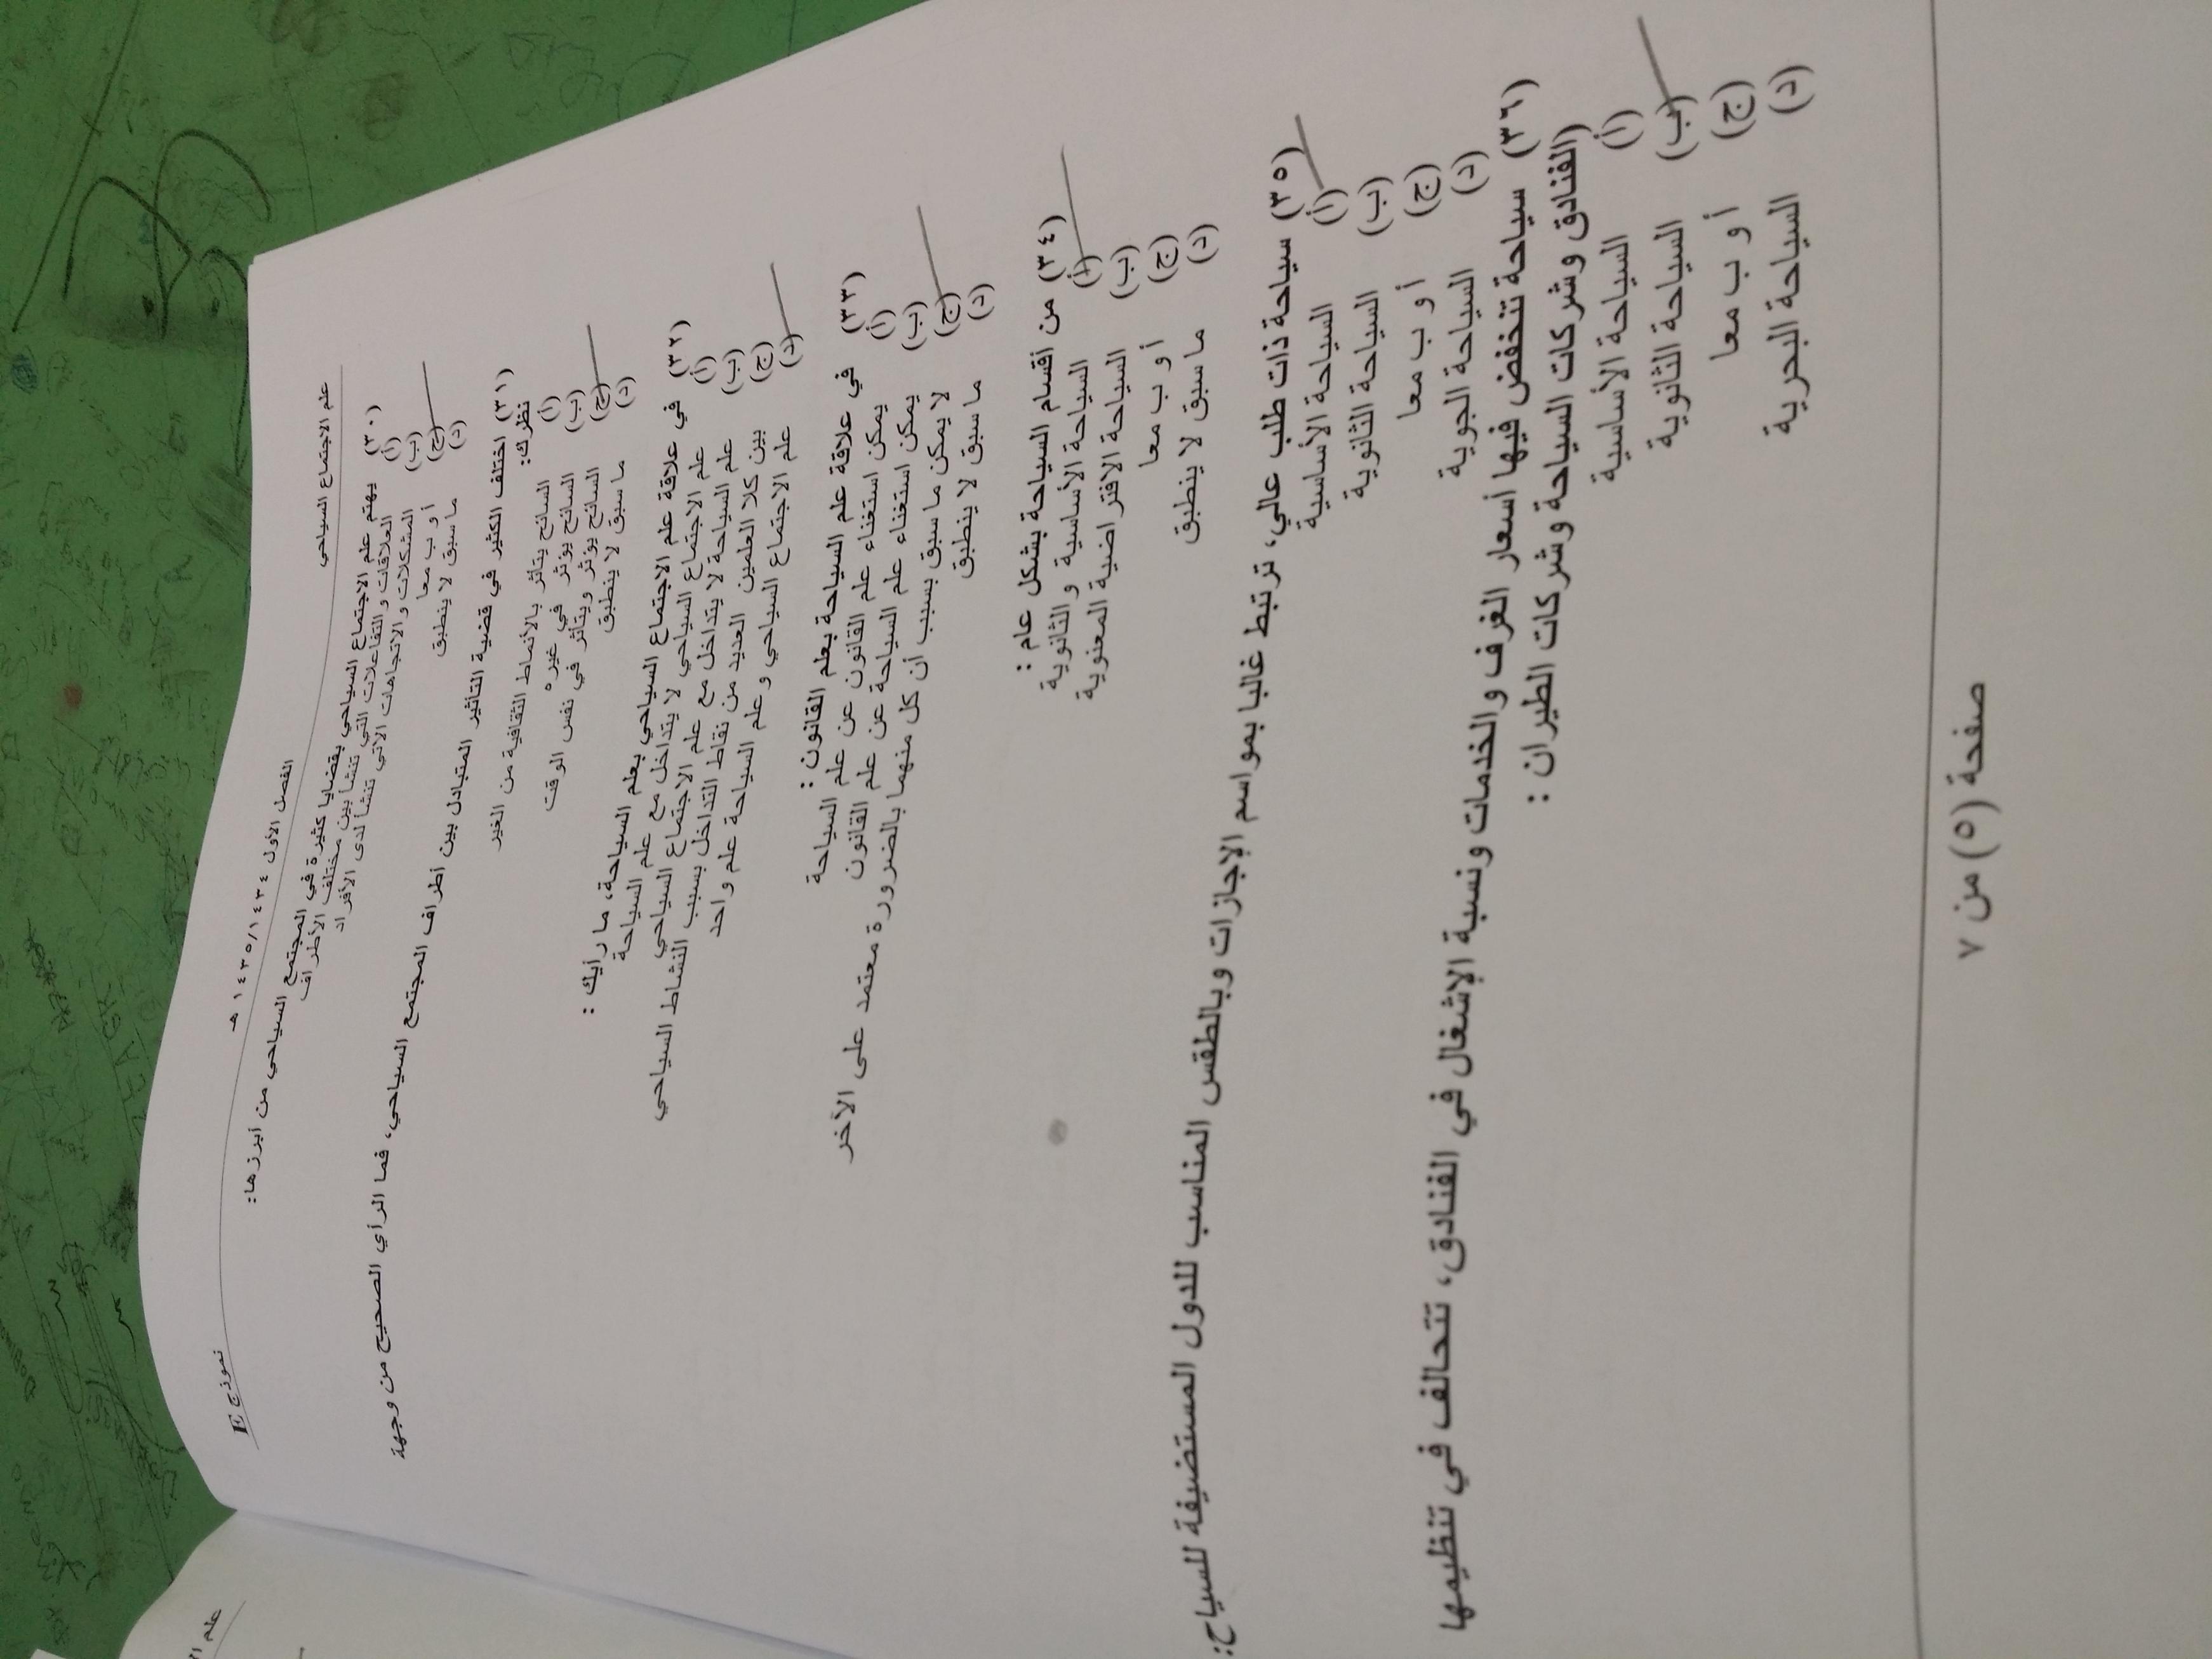 علم الاجتماع السياحي
الفصل الأول ١٤٣٤/١٤٣٥ هـ
نموذج E
(٣٠) يهتم علم الاجتماع السياحي بقضايا كثيرة في المجتمع السياحي من أبرزها:
(أ) العلاقات والتفاعلات التي تنشأ بين مختلف الأطراف
(ب) المشكلات والاتجاهات الآتي تنشأ لدى الأفراد
(ج) أ و ب معا
(د) ما سبق لا ينطبق
(٣١) اختلف الكثير في قضية التأثير المتبادل بين أطراف المجتمع السياحي، فما الرأي الصحيح من وجهة
نظرك:
(أ) السائح يتأثر بالأنماط الثقافية من الغير
(ب) السائح يؤثر في غيره
(ج) السائح يؤثر ويتأثر في نفس الوقت
(د) ما سبق لا ينطبق
(٣٢) في علاقة علم الاجتماع السياحي بعلم السياحة، ما رأيك :
(أ) علم الاجتماع السياحي لا يتداخل مع علم السياحة
(ب) علم السياحة لا يتداخل مع علم الاجتماع السياحي
(ج) بين كلا العلمين العديد من نقاط التداخل بسبب النشاط السياحي
(د) علم الاجتماع السياحي و علم السياحة علم واحد
(٣٣) في علاقة علم السياحة بعلم القانون :
(أ) يمكن استغناء علم القانون عن علم السياحة
(ب) يمكن استغناء علم السياحة عن علم القانون
(ج) لا يمكن ما سبق بسبب أن كل منهما بالضرورة معتمد على الآخر
(د) ما سبق لا ينطبق
(٣٤) من أقسام السياحة بشكل عام :
(أ) السياحة الأساسية و الثانوية
(ب) السياحة الافتراضية المعنوية
(ج) أ و ب معا
(د) ما سبق لا ينطبق
(٣٥) سياحة ذات طلب عالي، ترتبط غالبا بمواسم الإجازات وبالطقس المناسب للدول المستضيفة للسياح:
(أ) السياحة الأساسية
(ب) السياحة الثانوية
(ج) أ و ب معا
(د) السياحة الجوية
(٣٦) سياحة تنخفض فيها أسعار الغرف والخدمات ونسبة الإشغال في الفنادق، تتحالف في تنظيمها
(الفنادق وشركات السياحة وشركات الطيران :
(أ) السياحة الأساسية
(ب) السياحة الثانوية
(ج) أ و ب معا
(د) السياحة البحرية
صفحة (٥) من ٧